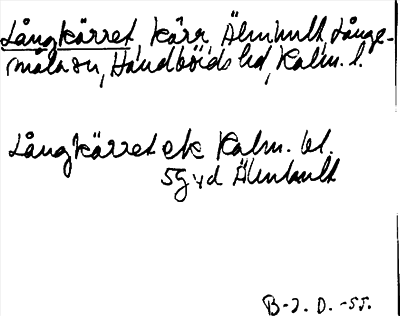 Långkärret, kärr, Älmhult, Långe-
måla sn, Handbörds hd, Kalm. l.
Långkärret ek Kalm. bl.
5G vd Älmhult
B-J. D. -55.